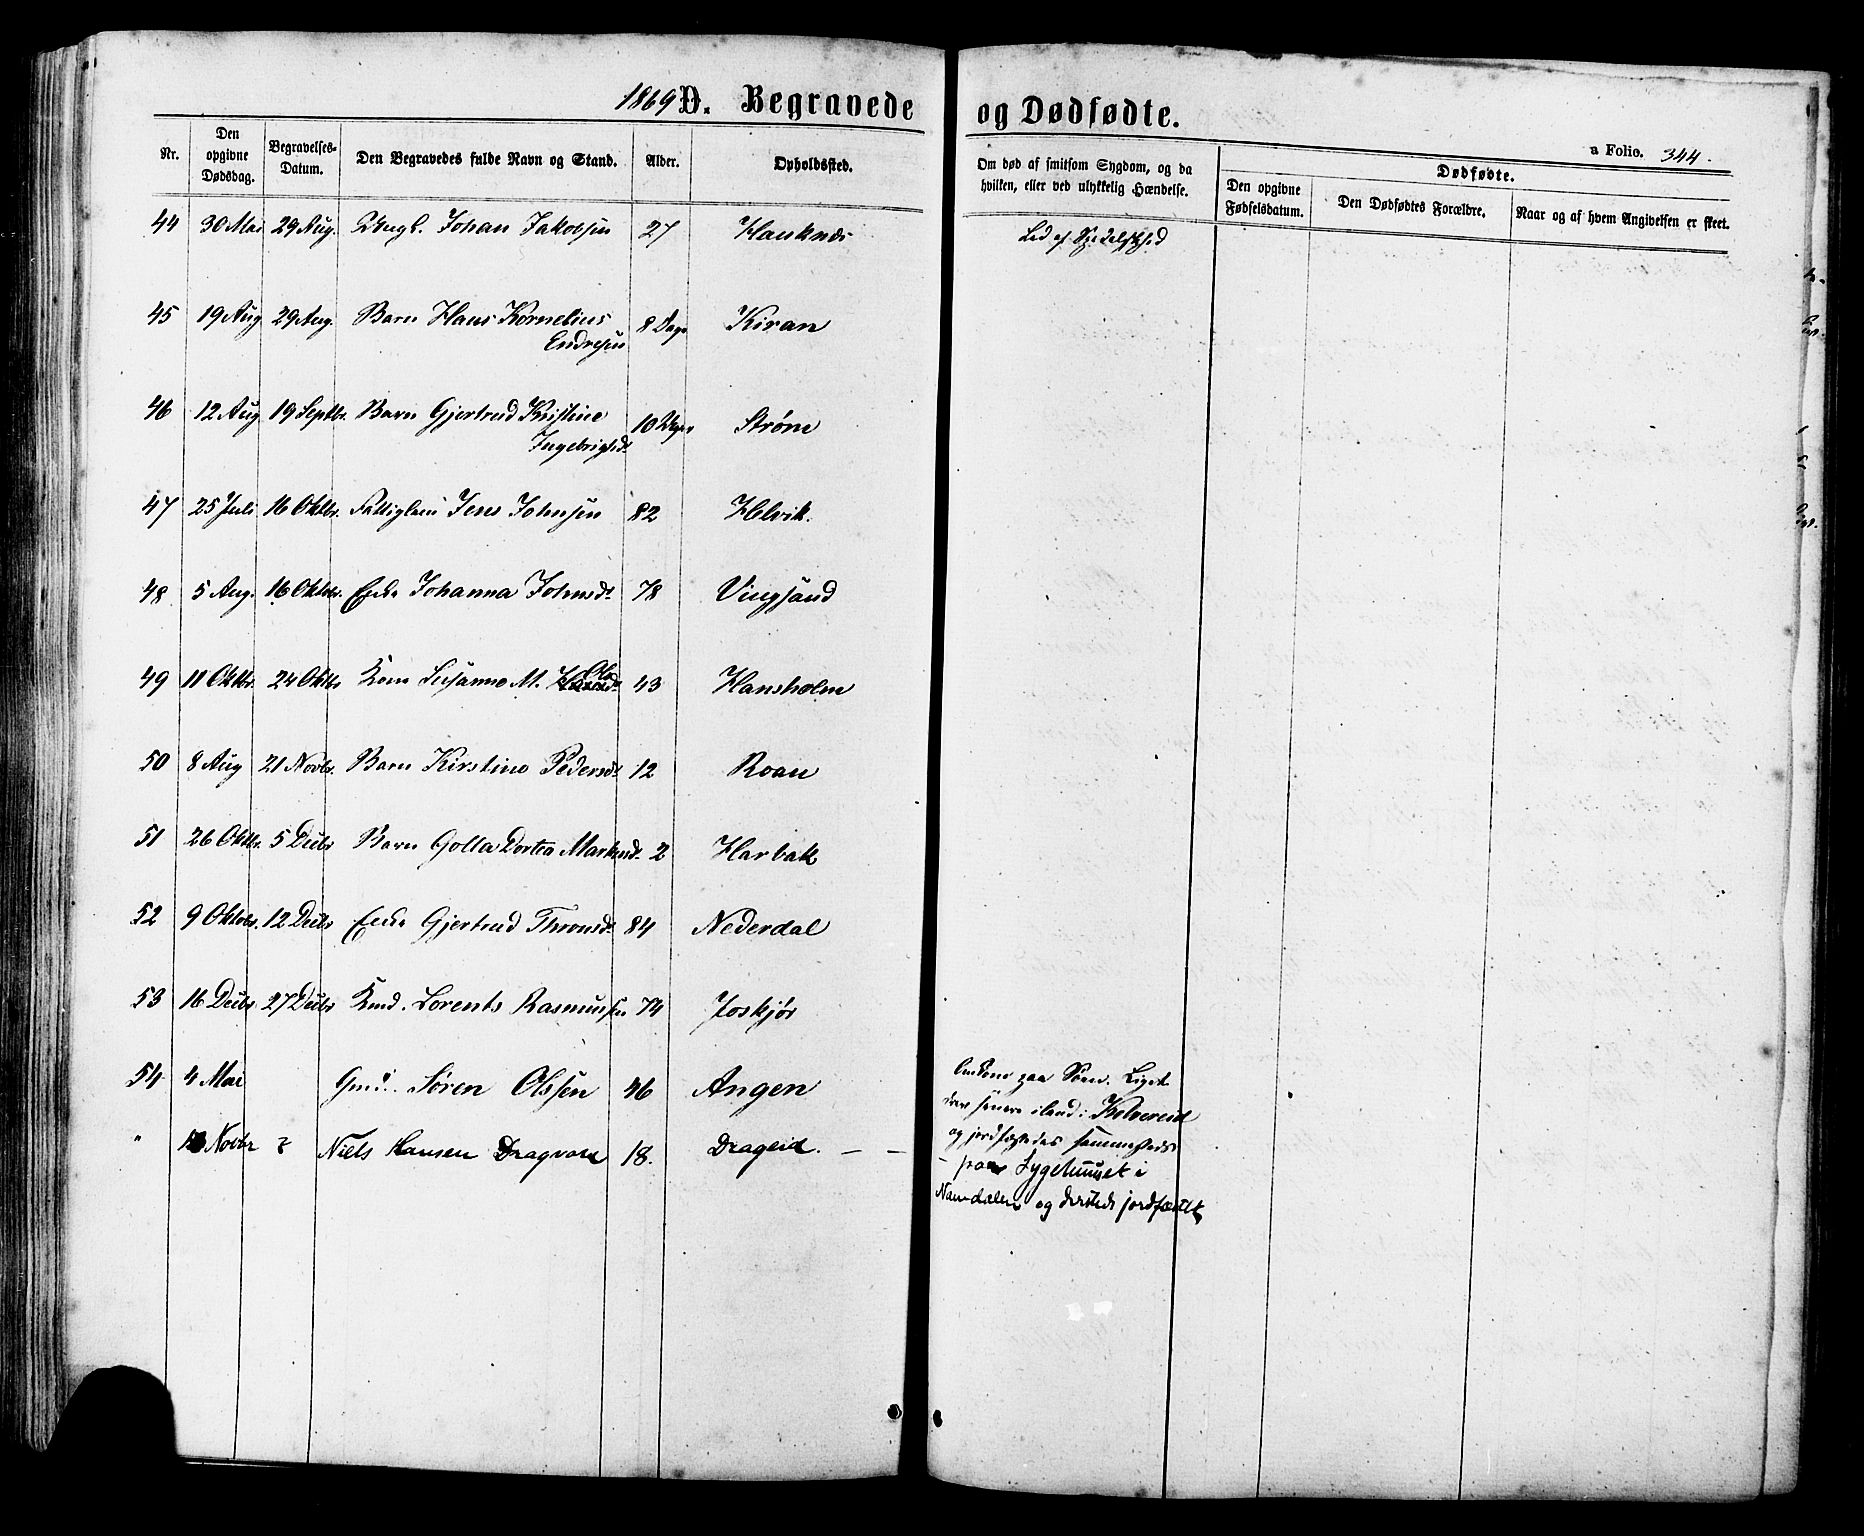 1869 D. Begravede og Dødfødte.
a Folio. 344.
Nr. Den opgivne Dødsdag. Begravelses-Datum. Den Begravedes fulde Navn og Stand. Alder. Opholdssted. Om død af smitsom Sygdom, og da hvilken, eller ved ulykkelig Hændelse. Dødfødte. Den opgivne Fødselsdatum. Den Dødfødtes Forældre. Naar og af hvem Angivelsen er skeet.
44 30 Mai 29 Aug. Ungk. Johan Jakobsen 27 Hauknæs Led af Spedalskhed
45 19 Aug 29 Aug. Barn Hans Kornelius Endresen 8 Dage Kiran
46 12 Aug 19 Septbr. Barn Gjertrud Kristine Ingebrigtsdt. 10 Strøm
47 25 Juli 16 Oktbr. Fattiglem Jens Johnsen 82 Helvik.
48 5 Aug. 16 Oktbr. Enke Johanna Johnsdt. 78 Vingsand
49 11 Oktbr. 24 Oktbr Kone Susanna M. Ols 43 Hansholm
50 8 Aug 21 Novbr. Barn Kirstine Pedersdt. 12 Roan
51 26 Oktbr. 5 Decbr Barn Golla Dortea 2 Harbak
52 9 Oktober. 12 Decbr Enke Gjertrud Thronsdt. 84 Nederdal
53 16 Decbr 27 Decbr Kmd. Lorents Rasmussen 74 Hoskjør
54 4 Mai Gmd. Søren Olssen 46 Angen Omkom paa Søen. Liget
drev senere iland i Kolvereid
og jordfæstedes sammesteds
" Novbr ? Niels Hansen Dragvold 18. Drageid. — — – paa Sygehuset i
Namdalen og dersteds jordfæstet